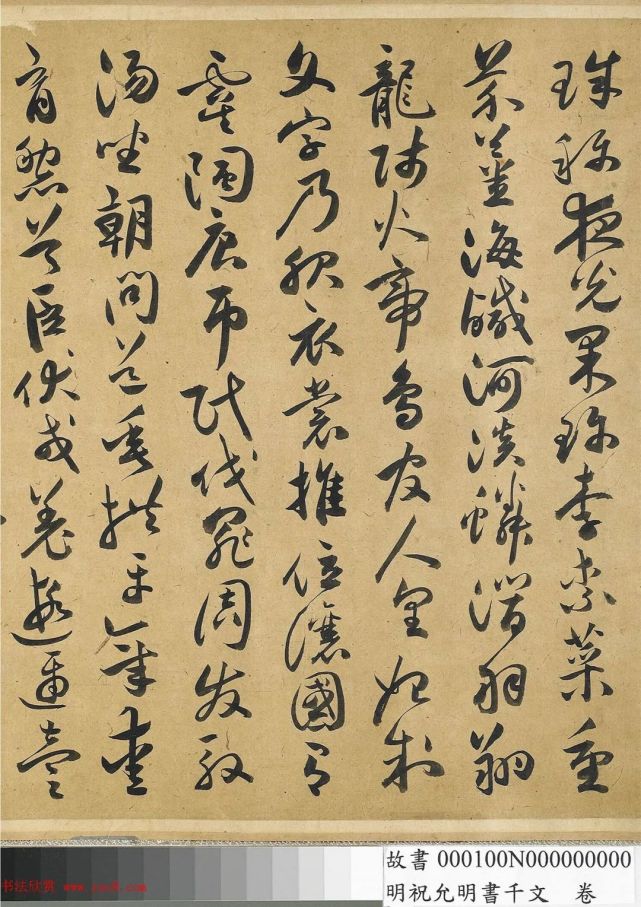 珠称夜光果珍李柰菜重
芥薑海鹹河淡鱗潛羽翔
龍師火帝鳥官人皇始制
文字乃服衣裳推位讓國有
虞陶唐弔民伐罪周發殷
湯坐朝問道垂拱平章愛
育黎首臣伏戎羌遐邇壹
故書 000100N000000000
明祝允明書千文 卷
书法欣赏